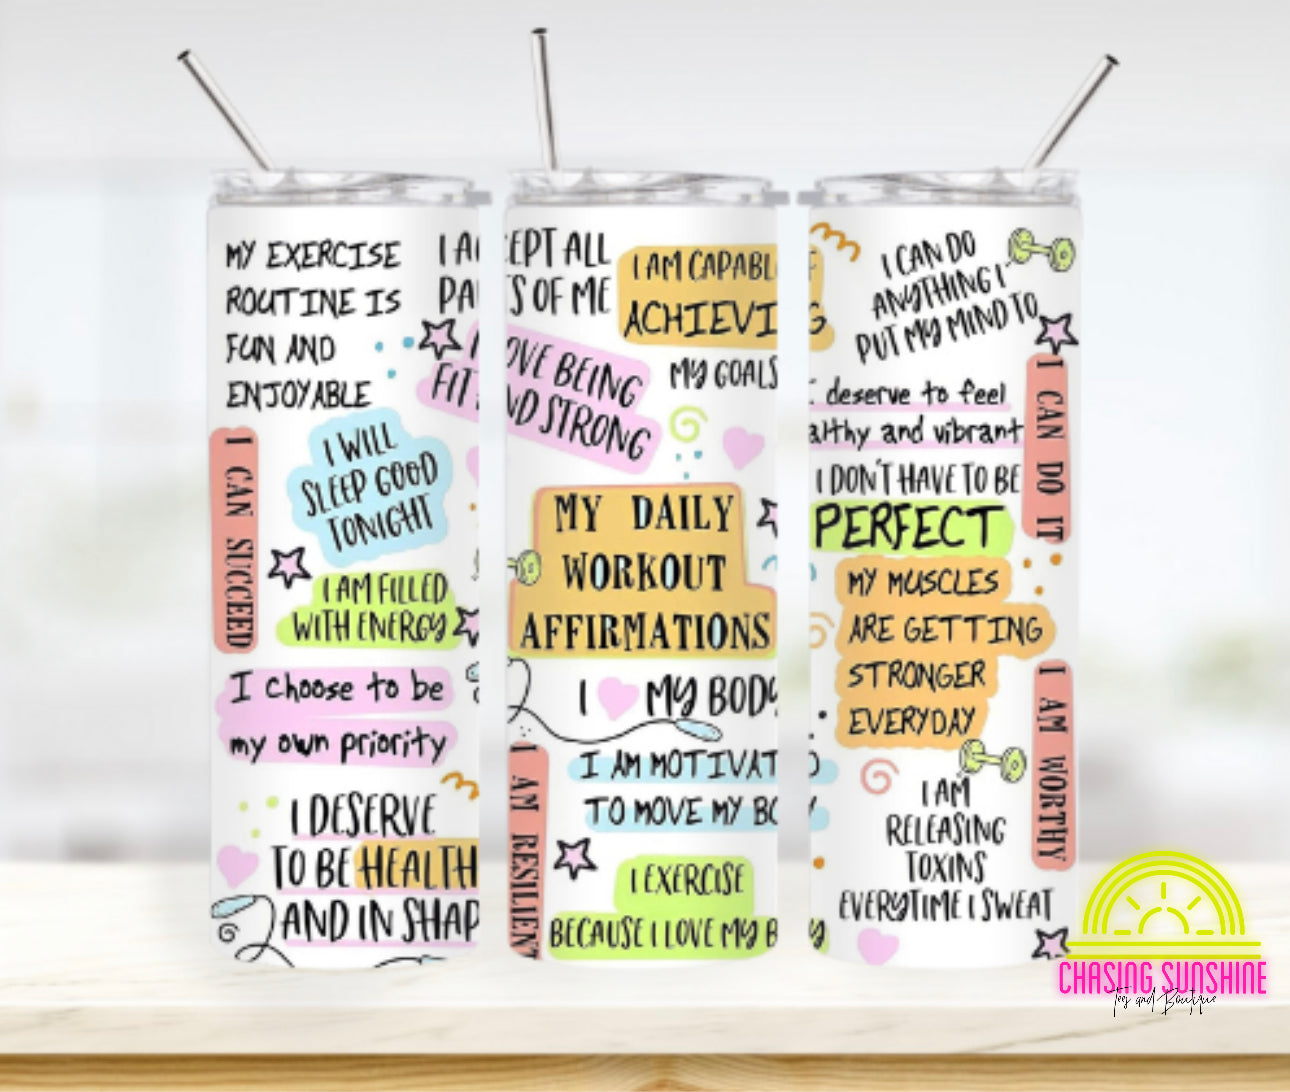 MY EXERCISE
ROUTINE IS
FUN AND
ENJOYABLE
I CAN SUCCEED
I WILL
SLEEP GOOD
TONIGHT
I AM FILLED
WITH ENERGY
I choose to be
my own priority
I DESERVE
TO BE HEALTH
AND IN SHAP
I A
PA
I
FIT
CEPT ALL
S OF ME
I AM CAPABL
ACHIEVI
MY GOALS
OVE BEING
ND STRONG
MY DAILY
WORKOUT
AFFIRMATIONS
I MY BODY
I AM MOTIVAT
TO MOVE MY BO
I AM RESILIENT
I EXERCISE
BECAUSE I LOVE MY B
F
G
I CAN DO
ANYTHING I
PUT MY MIND TO
I CAN DO IT
I deserve to feel
althy and vibrant
I DON'T HAVE TO BE
PERFECT
MY MUSCLES
ARE GETTING
STRONGER
EVERYDAY
I AM WORTHY
D
Y
Y
I AM
RELEASING
TOXINS
EVERYTIME I SWEAT
CHASING SUNSHINE
Tees and Boutique